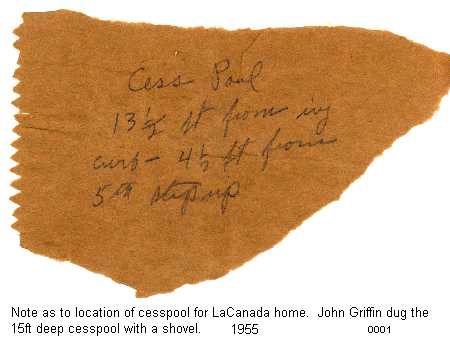 Cess Pool
13½ ft from ivy
curb - 4½ ft from
5th step up
Note as to location of cesspool for LaCanada home. John Griffin dug the
15ft deep cesspool with a shovel. 1955 0001